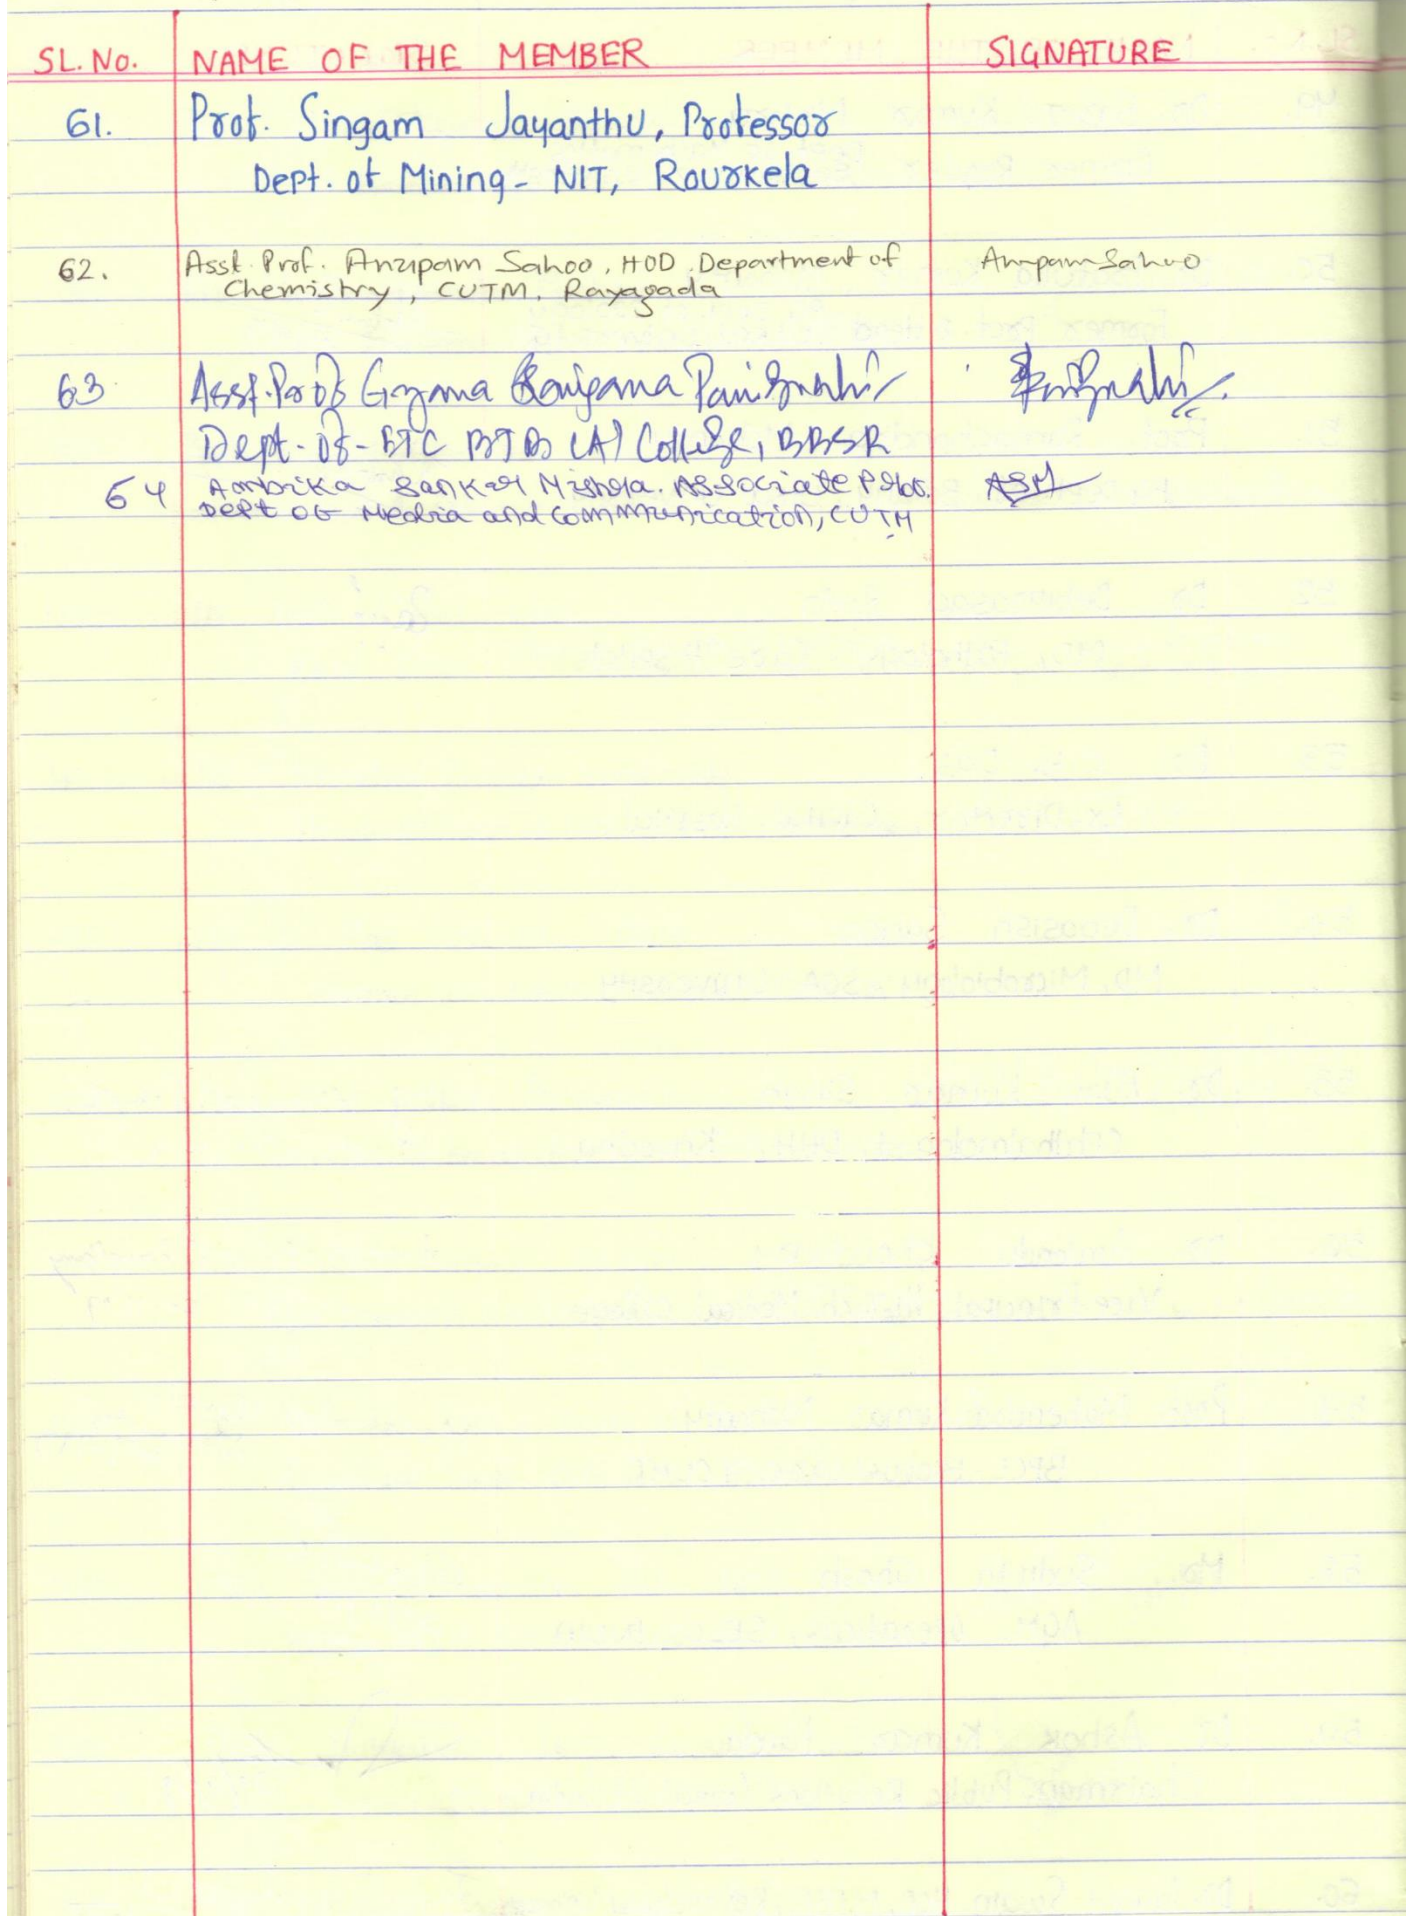 SL. No. NAME OF THE MEMBER SIGNATURE
61. Prof. Singam Jayanthu, Professor
Dept. of Mining - NIT, Rourkela
62. Asst. Prof. Anupam Sahoo, HOD Department of Anupam Sahoo
Chemistry, CUTM, Rayagada
63 Asst. Prof Gyana Ranjana Panigrahi Panigrahi
Dept-of- BJB (A) College, BBSR
64 Ambika Sankar Mishra. Associate Prof. ASM
Dept of Media and Communication, CUTM